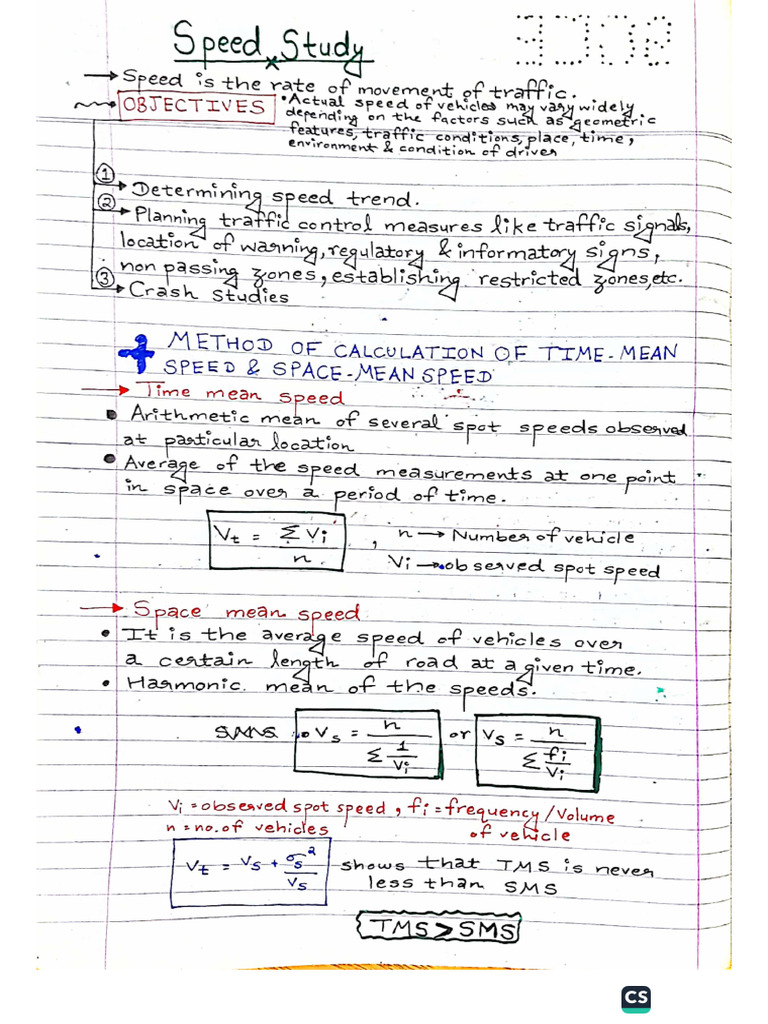 Speed Study
→ Speed is the rate of movement of traffic.
OBJECTIVES
• Actual speed of vehicles may vary widely
depending on the factors such as geometric
features, traffic conditions, place, time,
environment & condition of driver
① Determining speed trend.
② Planning traffic control measures like traffic signals,
location of warning, regulatory & informatory signs,
non passing zones, establishing restricted zones, etc.
③ Crash studies
METHOD OF CALCULATION OF TIME-MEAN
SPEED & SPACE-MEAN SPEED
→ Time mean speed
• Arithmetic mean of several spot speeds observed
at particular location
• Average of the speed measurements at one point
in space over a period of time.
Vt = Σ Vi / n , n → Number of vehicle
Vi → observed spot speed
→ Space mean speed
• It is the average speed of vehicles over
a certain length of road at a given time.
• Harmonic mean of the speeds.
SMS Vs = n / Σ 1/Vi or Vs = n / Σ fi/Vi
Vi = observed spot speed, fi = frequency/Volume
n = no. of vehicles of vehicle
Vt = Vs + σs²/Vs shows that TMS is never
less than SMS
TMS > SMS
CS